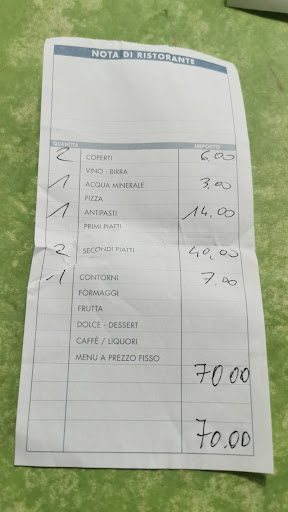 NOTA DI RISTORANTE
QUANTITÀ IMPORTO
2 COPERTI 6,00
VINO - BIRRA
1 ACQUA MINERALE 3,00
PIZZA
1 ANTIPASTI 14,00
PRIMI PIATTI
2 SECONDI PIATTI 40,00
1 CONTORNI 7,00
FORMAGGI
FRUTTA
DOLCE - DESSERT
CAFFÈ / LIQUORI
MENU A PREZZO FISSO
70.00
70.00